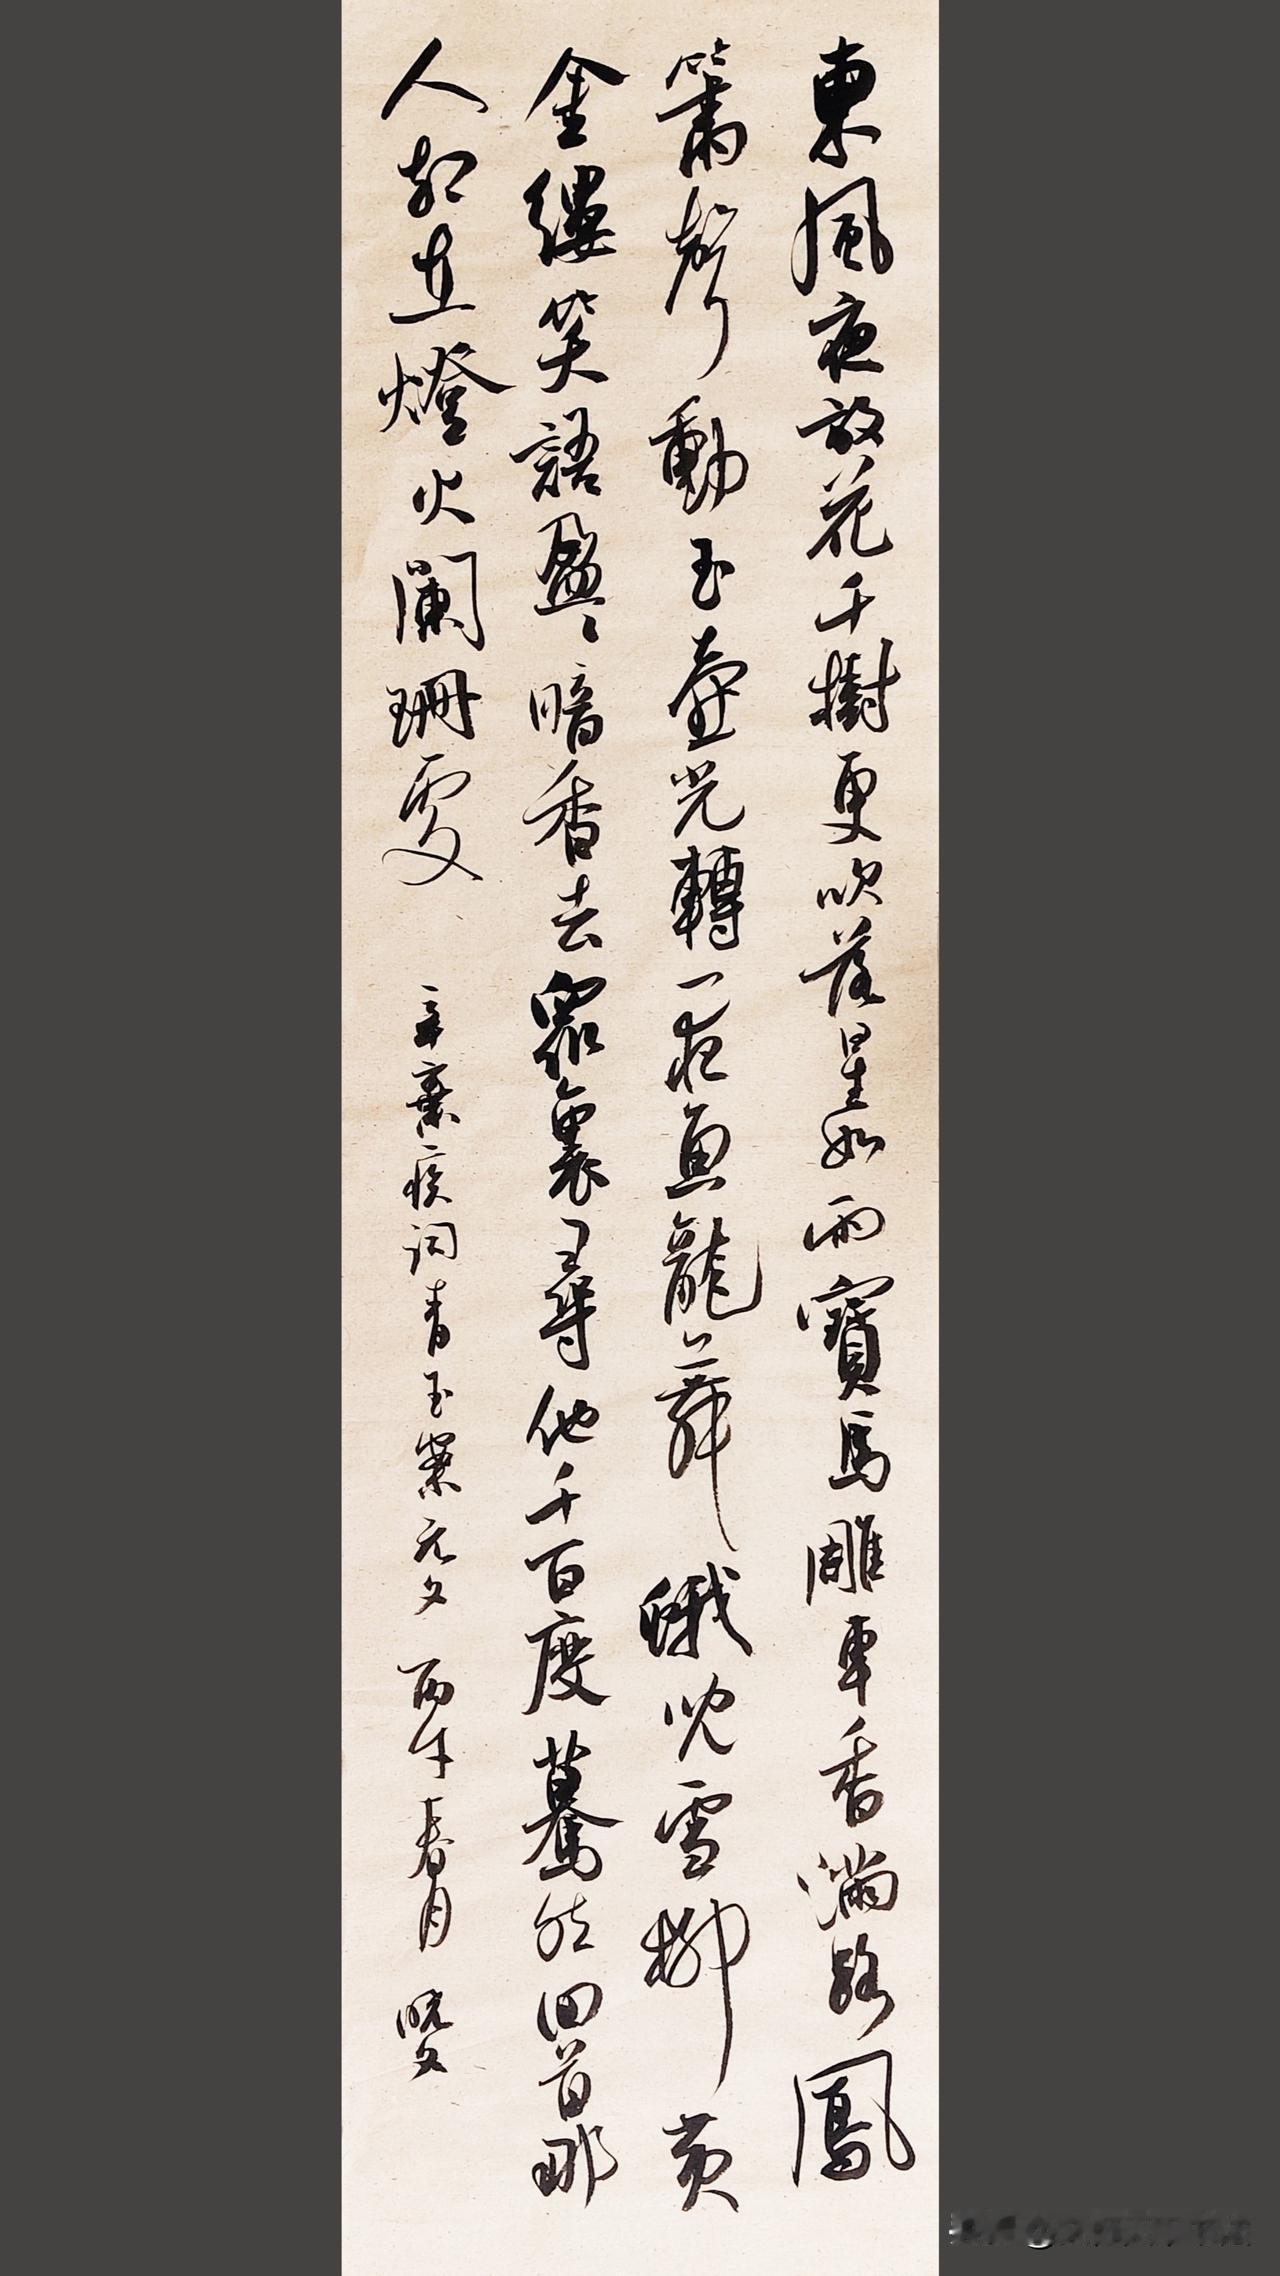 東風夜放花千樹更吹落星如雨寶馬雕車香滿路鳳
簫聲動玉壺光轉一夜魚龍舞蛾兒雪柳黃
金縷笑語盈〻暗香去眾裏尋他千百度驀然回首那
人却在燈火闌珊處
辛棄疾詞青玉案元夕 丙午春月 曉文